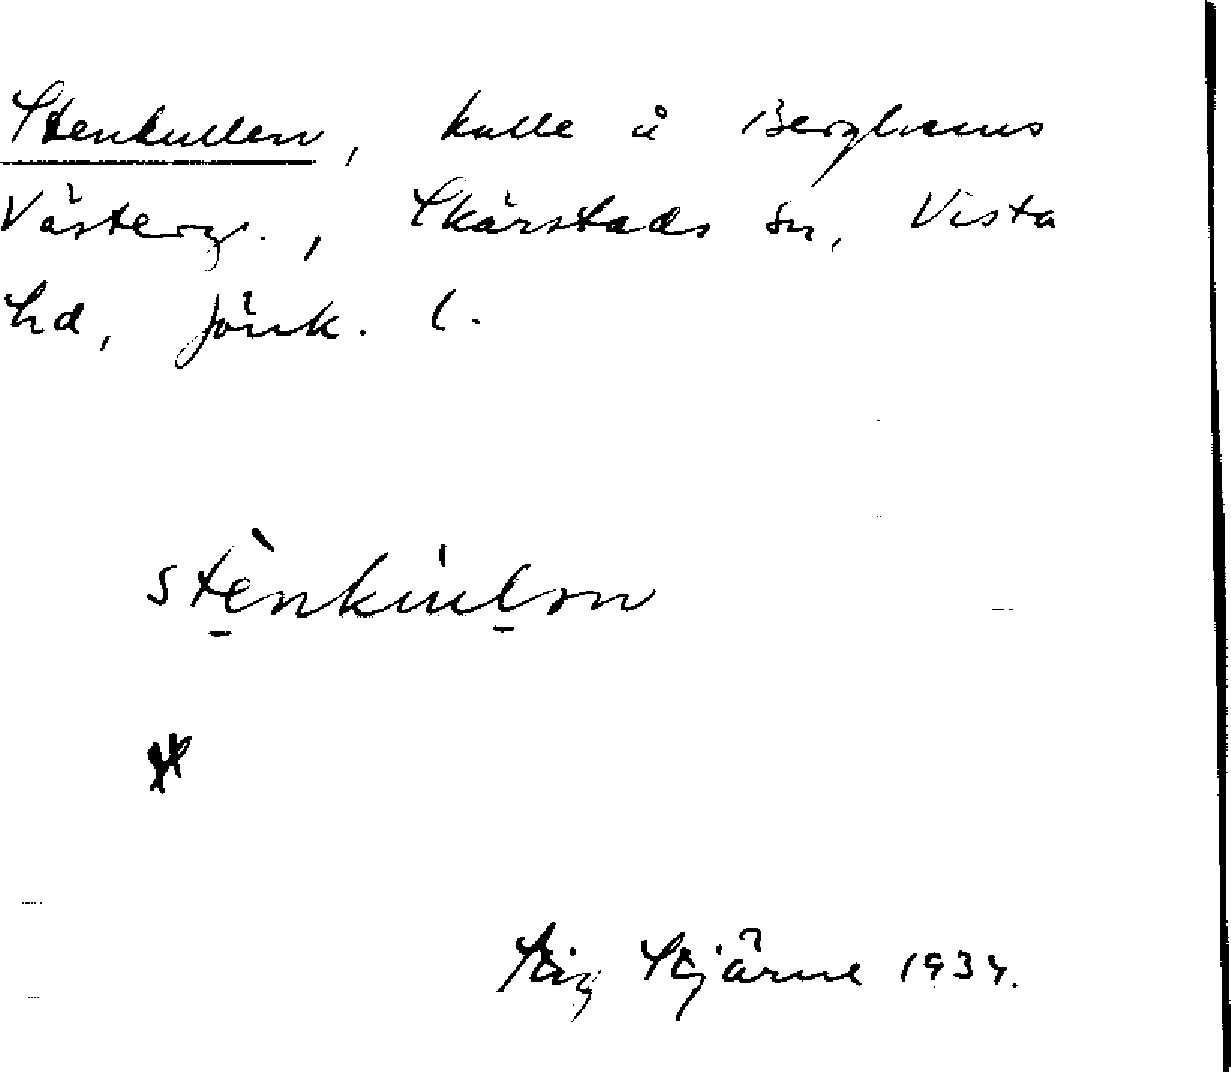 Stenkullen, kulle å Berghems
Västerg., Skärstads sn, Vista
hd, Jönk. l.
stènkúlon
Stig Stjärne 1934.